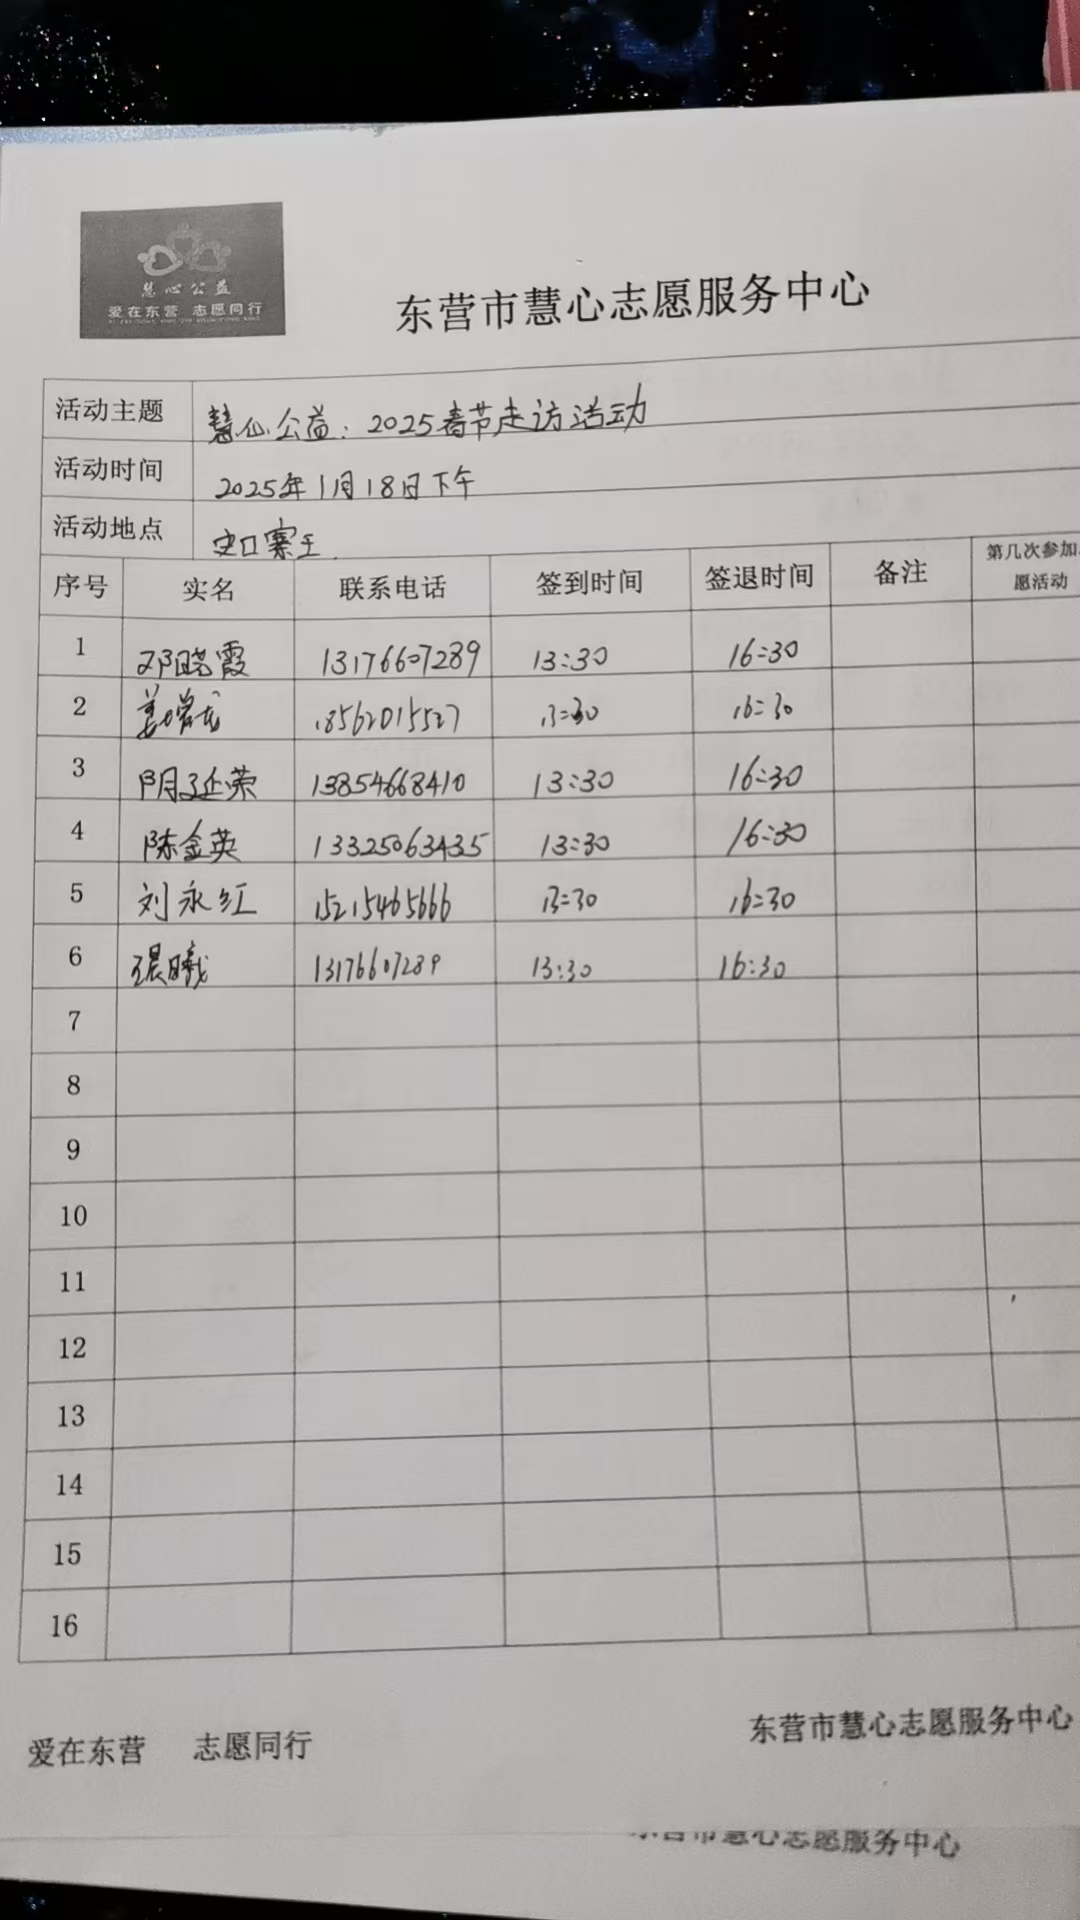 慧心公益
爱在东营 志愿同行
东营市慧心志愿服务中心
活动主题 慧心公益：2025春节走访活动
活动时间 2025年1月18日下午
活动地点 史口寨王.
序号 实名 联系电话 签到时间 签退时间 备注 第几次参加
愿活动
1 邓晓霞 13176607289 13:30 16:30
2 姜增龙 18562015527 13:30 16:30
3 阴延荣 13854668410 13:30 16:30
4 陈金英 13325063435 13:30 16:30
5 刘永红 15215465666 13:30 16:30
6 晨曦 13176607289 13:30 16:30
7
8
9
10
11
12
13
14
15
16
爱在东营 志愿同行 东营市慧心志愿服务中心
东营市慧心志愿服务中心